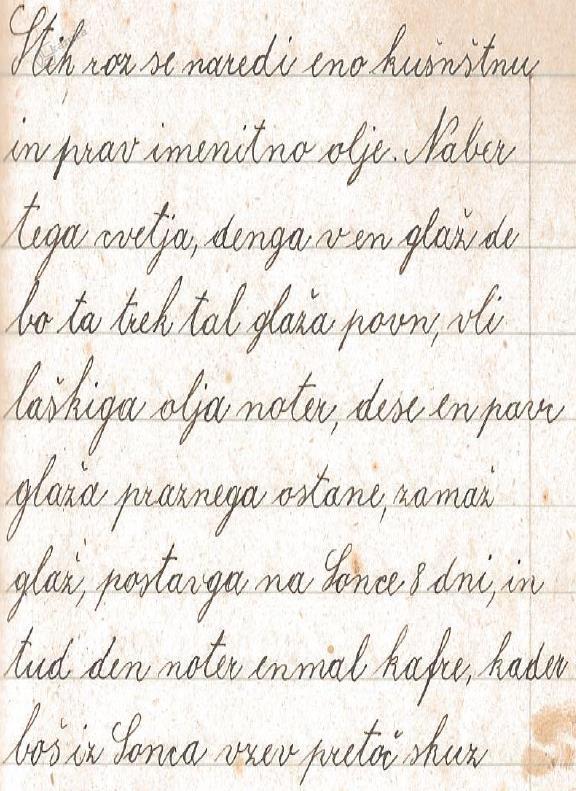 Stih roz se naredi eno kušnštnu
in prav imenitno olje. Naber
tega cvetja, denga v en glaž de
bo ta treh tal glaža povn, vli
laškiga olja noter, dese en pavr
glaža praznega ostane, zamaž
glaž, postavga na Sonce 8 dni, in
tud den noter enmal kafre, kader
boš iz Sonca vzev pretoč skuz